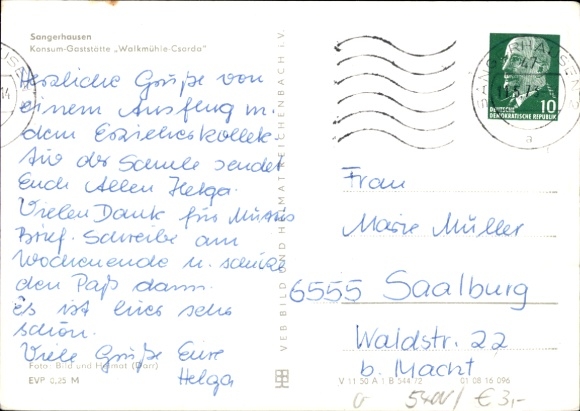 Sangerhausen
Konsum-Gaststätte „Walkmühle-Csarda"
Herzliche Grüße von
einem Ausflug m.
dem Erzieherkollek.
Aus der Schule sendet
Euch Allen Helga.
Vielen Dank für Muttis
Brief. Schreibe am
Wochenende u. schicke
den Paß dann.
Es ist hier sehr
schön.
Viele Grüße Eure
Helga
Foto: Bild und Heimat (Darr)
EVP 0,25 M
VEB BILD UND HEIMAT REICHENBACH i. V.
SANGERHAUSEN
a
10
DEUTSCHE
DEMOKRATISCHE REPUBLIK
Frau
Marie Müller
6555 Saalburg
Waldstr. 22
b. Macht
V 11 50 A 1 B 544/72 01 08 16 096
€ 3,-